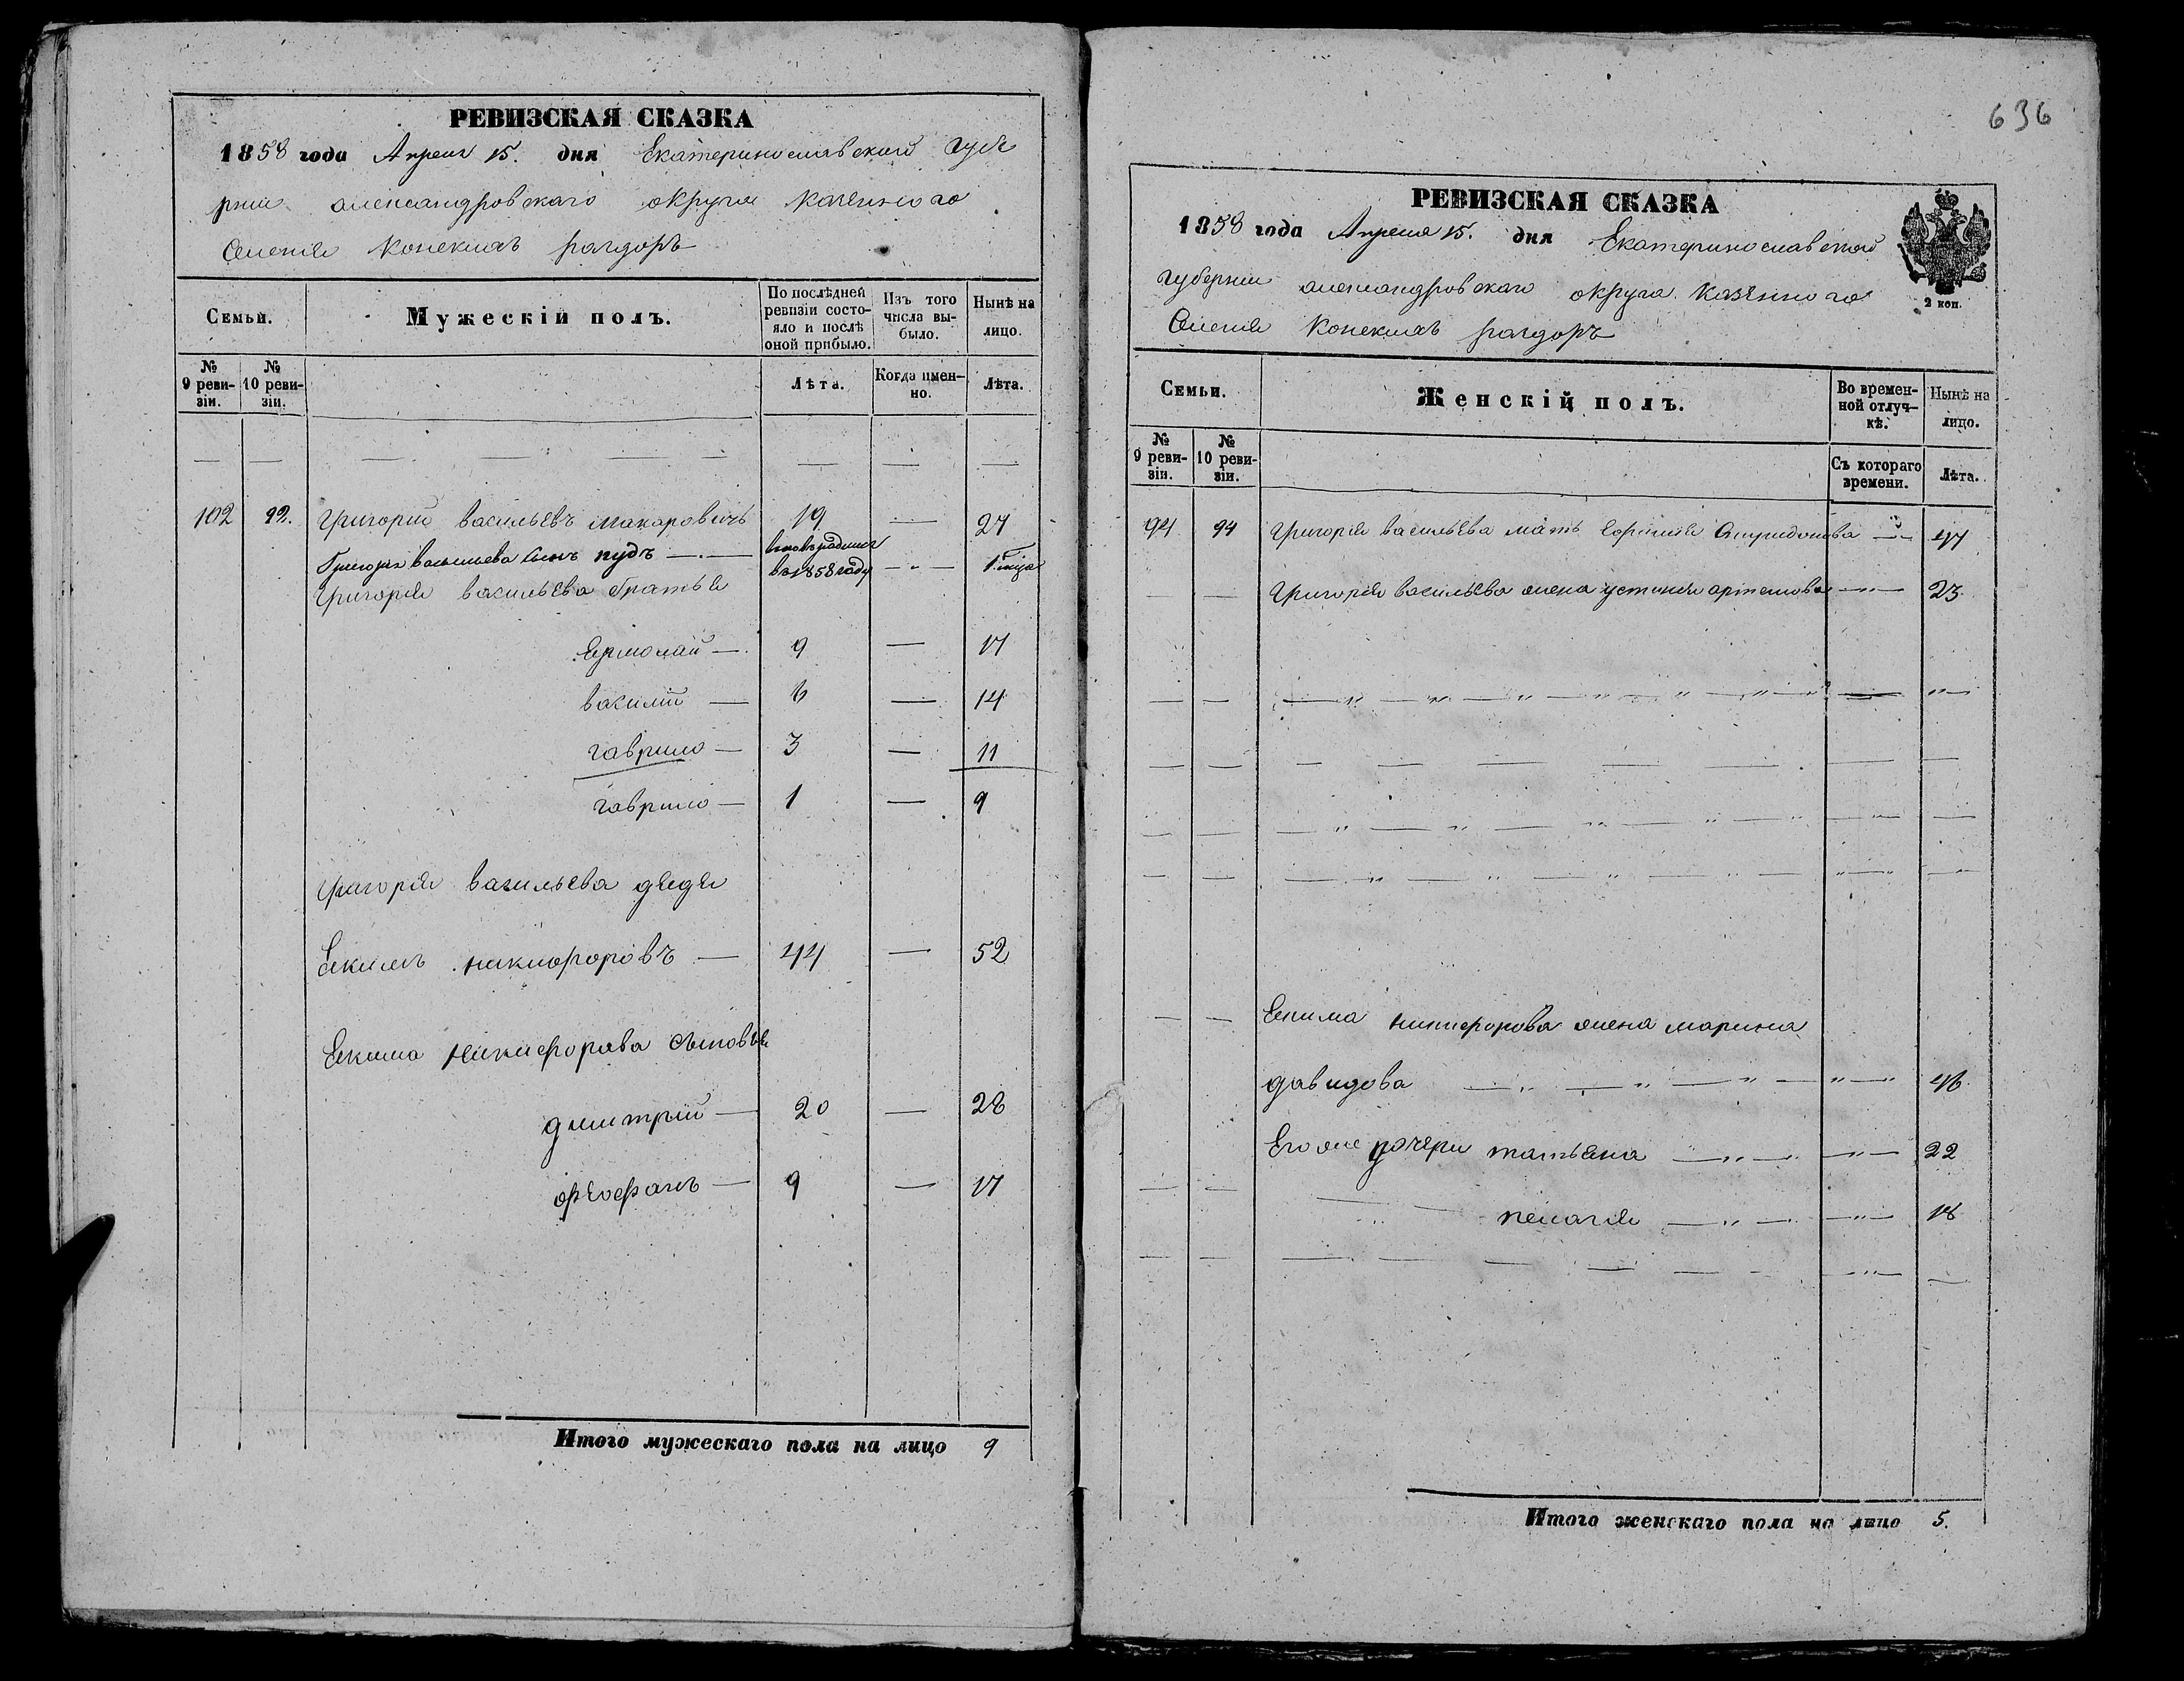 РЕВИЗСКАЯ СКАЗКА
1858 года Апреля 15. дня Екатеринославской губе
рнии александровского округа казенного
Селения Конских раздоръ
Семьи.
Мужескій полъ.
По послѣдней ревизіи состояло и послѣ оной прибыло.
Изъ того числа выбыло.
Нынѣ на лицо.
№ 9 ревизіи.
№ 10 ревизіи.
Лѣта.
Когда именно.
Лѣта.
102 Григорий васильевъ макаровичъ 19 — 27
Григорія васильева сынъ пудъ — вновьрожденъ в 1858 году — 1.
Григорія васильева братья
Ермолай — 9 — 17
василій — 6 — 14
гаврило — 3 — 11
гаврило — 1 — 9
Григорія васильева дядя
Екимъ никифоровъ — 44 — 52
Екима Никифорова сыновья
димитрій — 20 — 28
феофанъ — 9 — 17
Итого мужескаго пола на лицо 9
636
РЕВИЗСКАЯ СКАЗКА
1858 года Апреля 15. дня Екатеринославской
губернии александровского округа казенного
Селения Конских раздоръ
2 коп.
Семьи.
Женскій полъ.
Во временной отлучкѣ.
Нынѣ на лицо.
№ 9 ревизіи.
№ 10 ревизіи.
Съ котораго времени.
Лѣта.
94 94 Григорія васильева мать Спиридонова — 47
Григорія васильева жена устинія артемова — 23
Екима никифорова жена марина
давидова — 46
Его же дочери татьяна — 22
пелагія — 18
Итого женскаго пола на лицо 5.